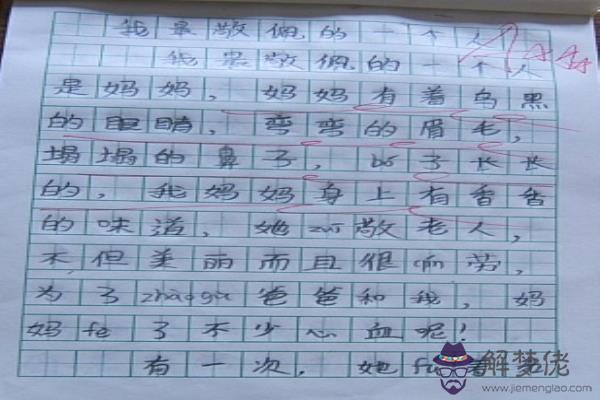 我最敬佩的一个人
我最敬佩的一个人
是妈妈，妈妈有着乌黑
的眼睛，弯弯的眉毛，
塌塌的鼻子，bó子长长
的，我妈妈身上有香香
的味道，她zūn敬老人，
不但美丽而且很qín劳，
为了zhàogù爸爸和我，妈
妈fè了不少心血呢！
有一次，她
解梦佬
www.jiemenglao.com